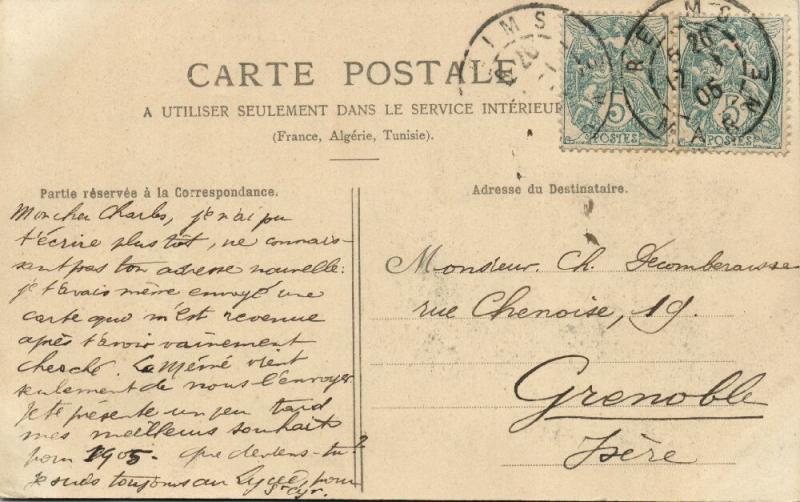 CARTE POSTALE
A UTILISER SEULEMENT DANS LE SERVICE INTÉRIEUR
(France, Algérie, Tunisie).
Partie réservée à la Correspondance.
Mon cher Charles, je n'ai pu
t'écrire plus tôt, ne connais-
sant pas ton adresse nouvelle:
je t'avais même envoyé une
carte qui m'est revenue
après t'avoir vainement
cherché. La Mémé vient
seulement de nous l'envoyer
Je te présente un peu tard
mes meilleurs souhaits
pour 1905. que deviens-tu?
Je suis toujours au Lycée, pour
St Cyr.
Adresse du Destinataire.
Monsieur. Ch.
rue Chenoise, 19.
Grenoble
Isère
REIMS
MARNE
20
12
05
5
POSTES
5
POSTES